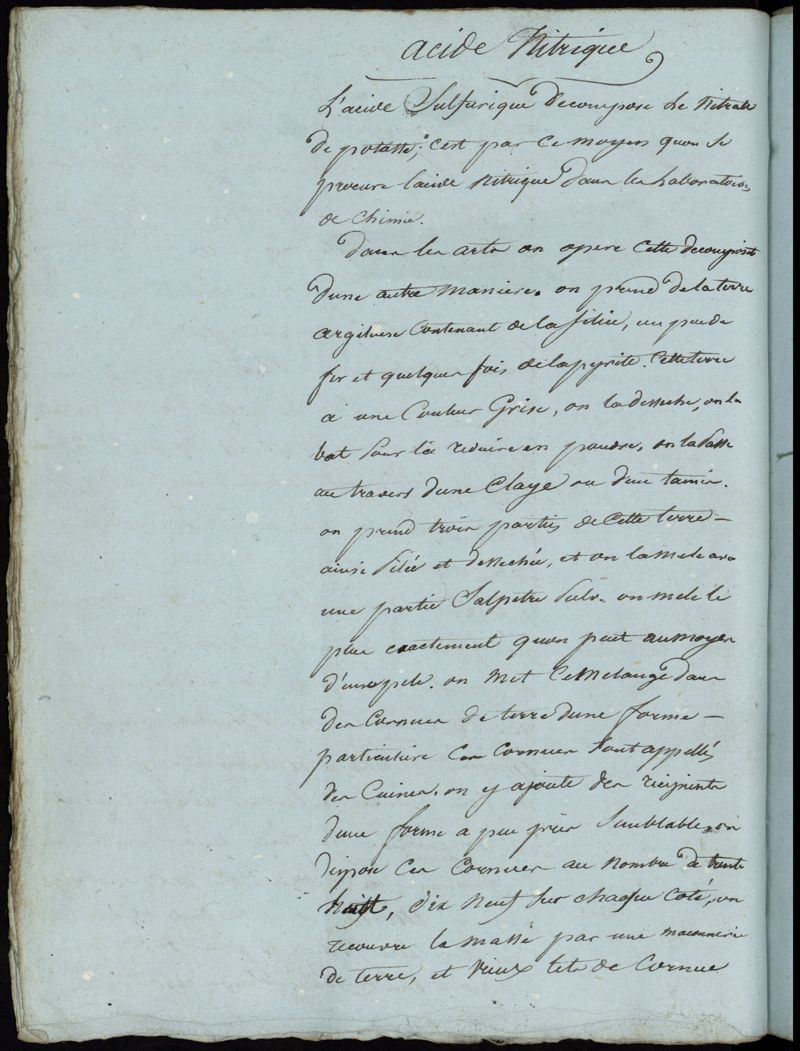 acide Nitrique
L'acide Sulfurique decompose Le Nitrate
de potasse; c'est par ce moyen quon se
procure lacide Nitrique dans les Laboratoires
de chimie.
dans les arts on opere cette decomposit
dune autre maniere. on prend de la terre
argileuse contenant de la silice, un peu de
fer et quelques fois de la pyrite. Cette terre
a une Couleur Grise, on la desseche, on la
bat pour la reduire en poudre, on la passe
au travers dune Claye ou dun tamis.
on prend trois parties de cette terre
ainsi pilée et dessechée, et on la mele avec
une partie Salpetre pulv. on mele le
plus exactement quon peut au moyen
d'une pele. on met ce melange dans
des Cornues de terre dune forme
particuliere ces cornues sont appellés
des Cuines. on y ajoute des recipients
dune forme a peu près semblable. on
dispose ces cornues au nombre de trente
huit, dix neuf sur chaque coté, on
recouvre la masse par une maconnerie
de terre, et vieux tets de Cornue